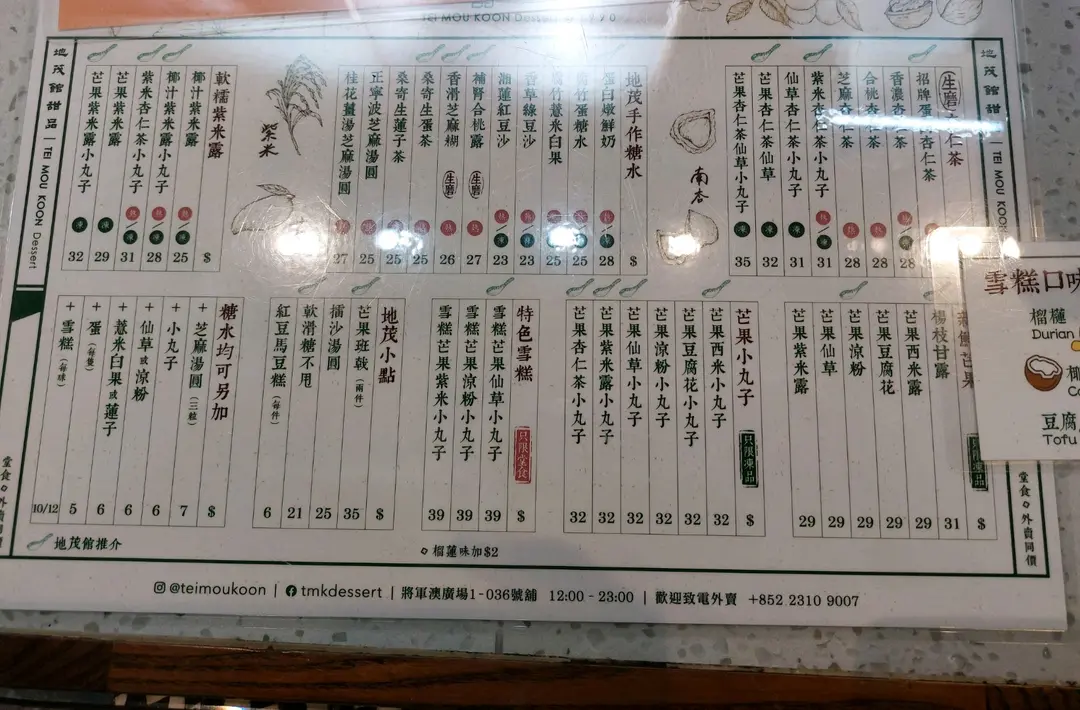 TEI MOU KOON Dessert
地茂館甜品 | TEI MOU KOON Dessert
生磨 仁茶 $
招牌蛋 杏仁茶
香濃杏仁茶 熱/凍 28
合桃杏仁茶 熱 28
芝麻杏仁茶 熱 28
紫米杏仁茶小丸子 熱/凍 31
仙草杏仁茶小丸子 凍 31
芒果杏仁茶仙草 凍 32
芒果杏仁茶仙草小丸子 凍 35
南杏
地茂手作糖水 $
蛋白燉鮮奶 熱/凍 28
竹蛋糖水 25
竹薏米白果 25
香草綠豆沙 熱/凍 23
湘蓮紅豆沙 熱/凍 23
補腎合桃露 生磨 熱 27
香滑芝麻糊 生磨 熱 26
桑寄生蛋茶 熱 25
桑寄生蓮子茶 25
正寧波芝麻湯圓 25
桂花薑湯芝麻湯圓 27
紫米
軟糯紫米露 $
椰汁紫米露 熱/凍 25
椰汁紫米露小丸子 熱/凍 28
紫米杏仁茶小丸子 熱/凍 31
芒果紫米露 凍 29
芒果紫米露小丸子 凍 32
地茂館甜品 | TEI MOU KOON Dessert
芒果 只限凍品 $
楊枝甘露 31
芒果西米露 29
芒果豆腐花 29
芒果涼粉 29
芒果仙草 29
芒果紫米露 29
芒果小丸子 只限凍品 $
芒果西米小丸子 32
芒果豆腐花小丸子 32
芒果涼粉小丸子 32
芒果仙草小丸子 32
芒果紫米露小丸子 32
芒果杏仁茶小丸子 32
特色雪糕 只限堂食 $
雪糕芒果仙草小丸子 39
雪糕芒果涼粉小丸子 39
雪糕芒果紫米小丸子 39
地茂小點 $
芒果班戟(兩件) 35
擂沙湯圓 25
軟滑糖不甩 21
紅豆馬豆糕(每件) 6
糖水均可另加 $
+ 芝麻湯圓(三粒) 7
+ 小丸子 6
+ 仙草或涼粉 6
+ 薏米白果或蓮子 6
+ 蛋(每隻) 5
+ 雪糕(每球) 10/12
堂食 外賣同價
堂食 外賣
地茂館推介
榴蓮味加$2
雪糕口味
榴槤
Durian
椰
Co
豆腐
Tofu
@teimoukoon | tmkdessert | 將軍澳廣場1-036號舖 12:00 - 23:00 | 歡迎致電外賣 +852 2310 9007